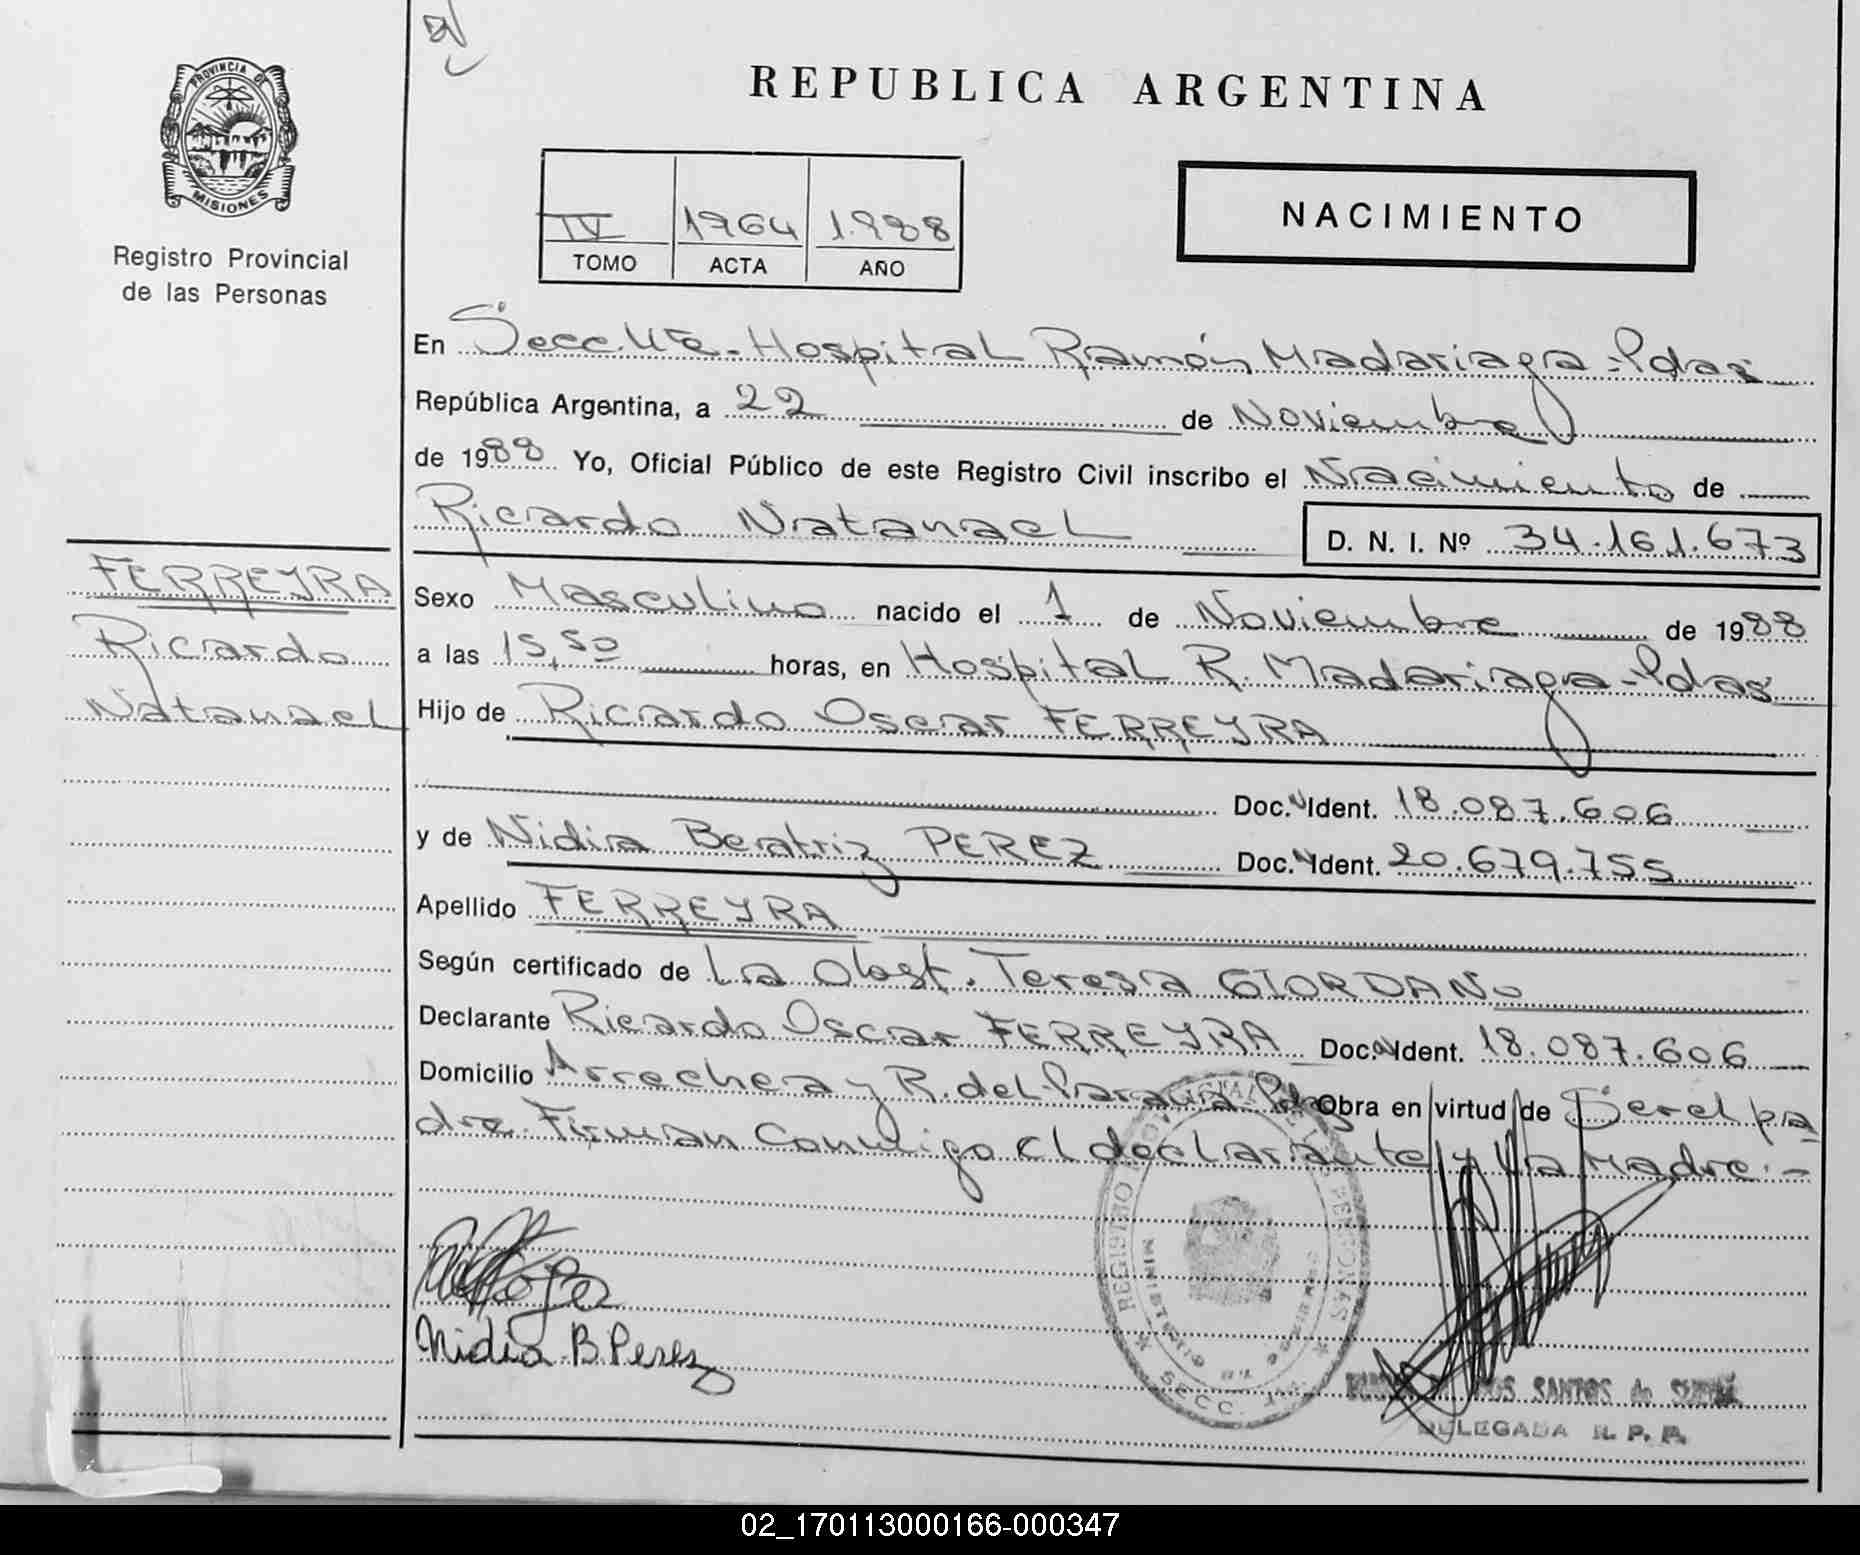 REPUBLICA ARGENTINA
PROVINCIA DE
MISIONES
Registro Provincial
de las Personas
IV 1764 1.988
TOMO ACTA AÑO
NACIMIENTO
En Secc. 4ta - Hospital Ramón Madariaga - Pdas
República Argentina, a 22 de Noviembre
de 1988 Yo, Oficial Público de este Registro Civil inscribo el Nacimiento de
Ricardo Natanael D. N. I. Nº 34.161.673
FERREYRA
Ricardo
Natanael
Sexo Masculino nacido el 1 de Noviembre de 1988
a las 15,50 horas, en Hospital R. Madariaga - Pdas
Hijo de Ricardo Oscar FERREYRA
Doc. N Ident. 18.087.606
y de Nidia Beatriz PEREZ Doc. N Ident. 20.679.755
Apellido FERREYRA
Según certificado de La Obst. Teresa GIORDANO
Declarante Ricardo Oscar FERREYRA Doc. N Ident. 18.087.606
Domicilio Arrechea y R. del Paraguay Pdas Obra en virtud de Ser el pa
dre. Firman Conmigo el declarante y la Madre.-
REGISTRO PERSONAS
MINISTERIO DE
SECC.
Nidia B. Perez
DOS SANTOS de
DELEGADA R. P. P.
02_170113000166-000347